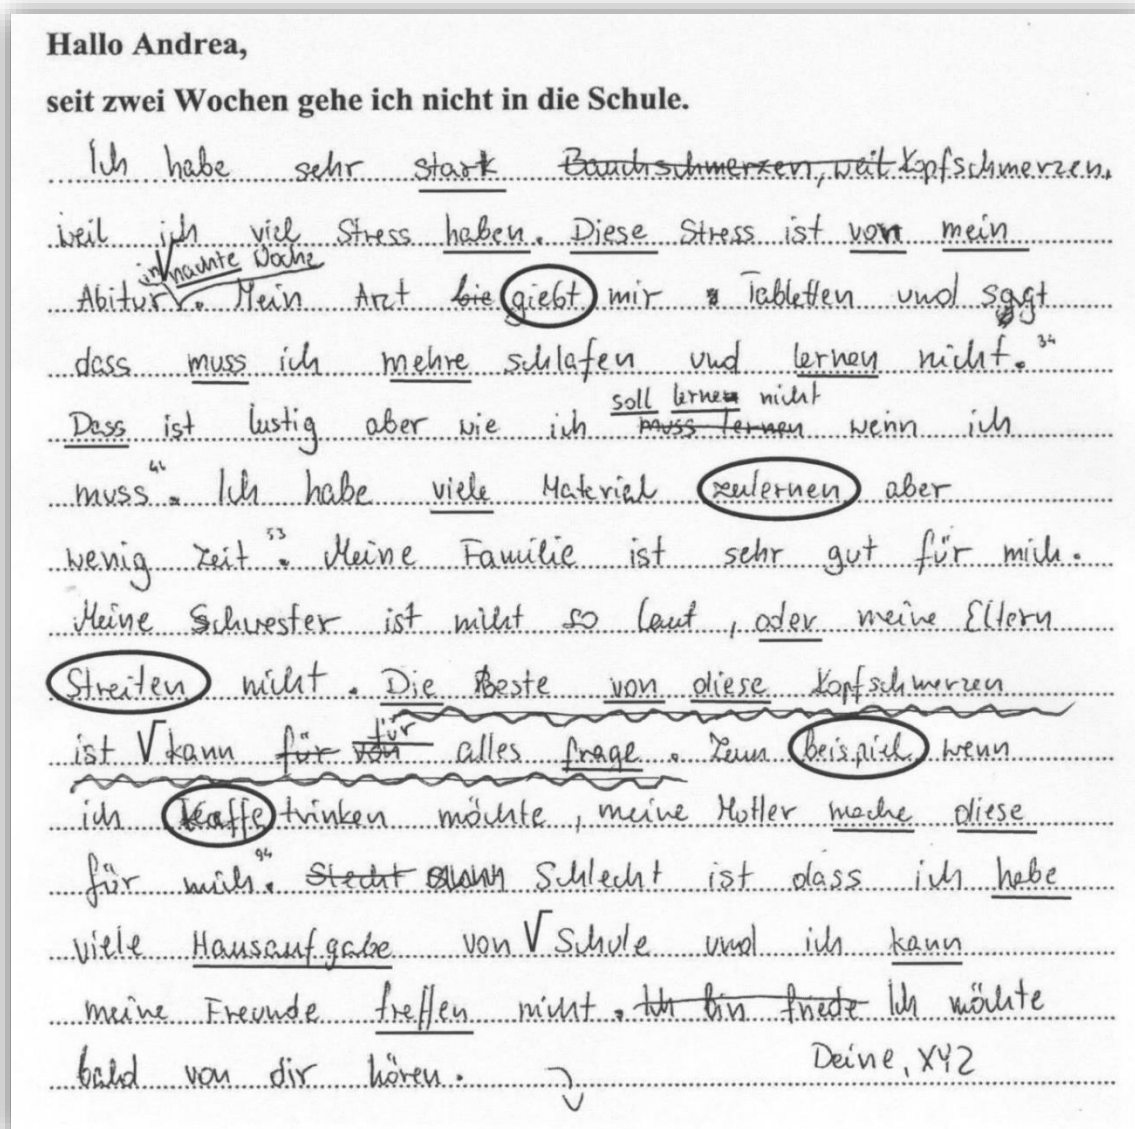 Hallo Andrea,
seit zwei Wochen gehe ich nicht in die Schule.
Ich habe sehr stark Bauchschmerzen, weil Kopfschmerzen,
weil ich viel Stress haben. Diese Stress ist von mein
in nächste Woche
Abitur. Mein Arzt bie giebt mir Tabletten und sagt
dass muss ich mehre schlafen und lernen nicht. 34
soll lernen nicht
Dass ist lustig aber wie ich muss lernen wenn ich
muss 44. Ich habe viele Material zulernen aber
wenig Zeit 53. Meine Familie ist sehr gut für mich.
Meine Schwester ist nicht so laut, oder meine Eltern
Streiten nicht. Die Beste von diese Kopfschmerzen
für
ist √ kann für von alles frage. Zum beispiel wenn
ich Kaffe trinken möchte, meine Mutter mache diese
für mich. 94 Stecht Schlecht ist dass ich habe
viele Hausaufgabe von √ Schule und ich kann
meine Freunde treffen nicht. Ich bin friede Ich möchte
bald von dir hören. Deine, XYZ